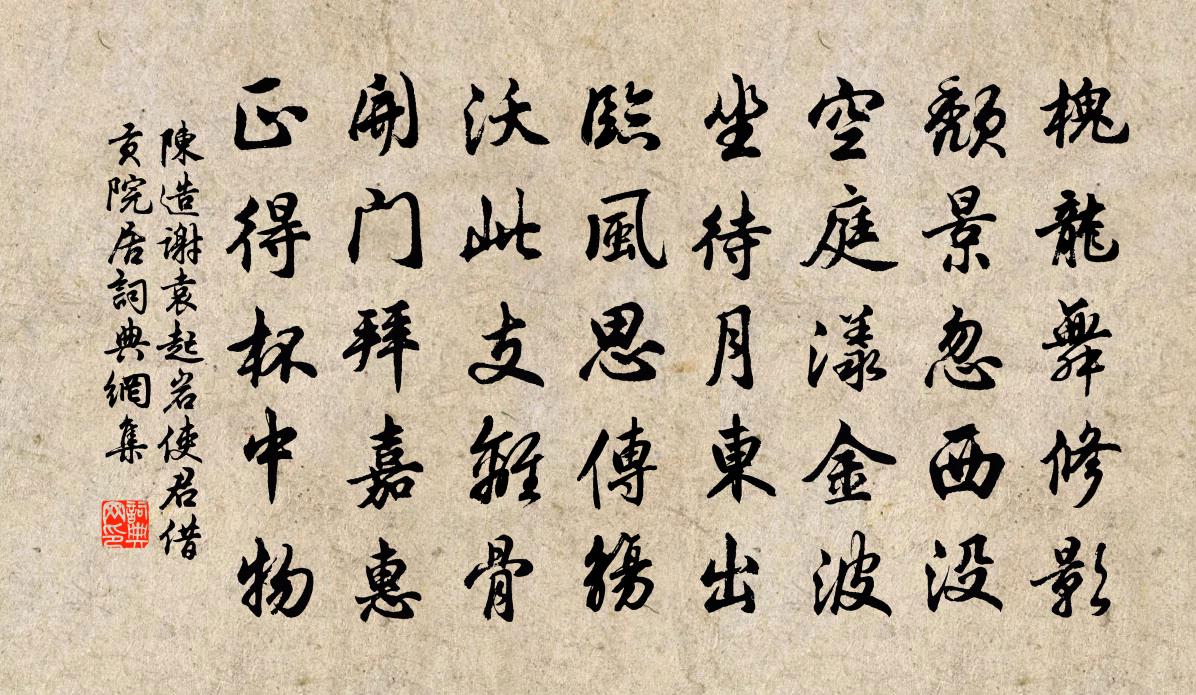 槐龍舞修影
頹景忽西没
空庭漾金波
坐待月東出
臨風思傳觴
沃此支離骨
開門拜嘉惠
正得杯中物
陳造謝袁起岩使君借
貢院居詞典網集
詞典網印